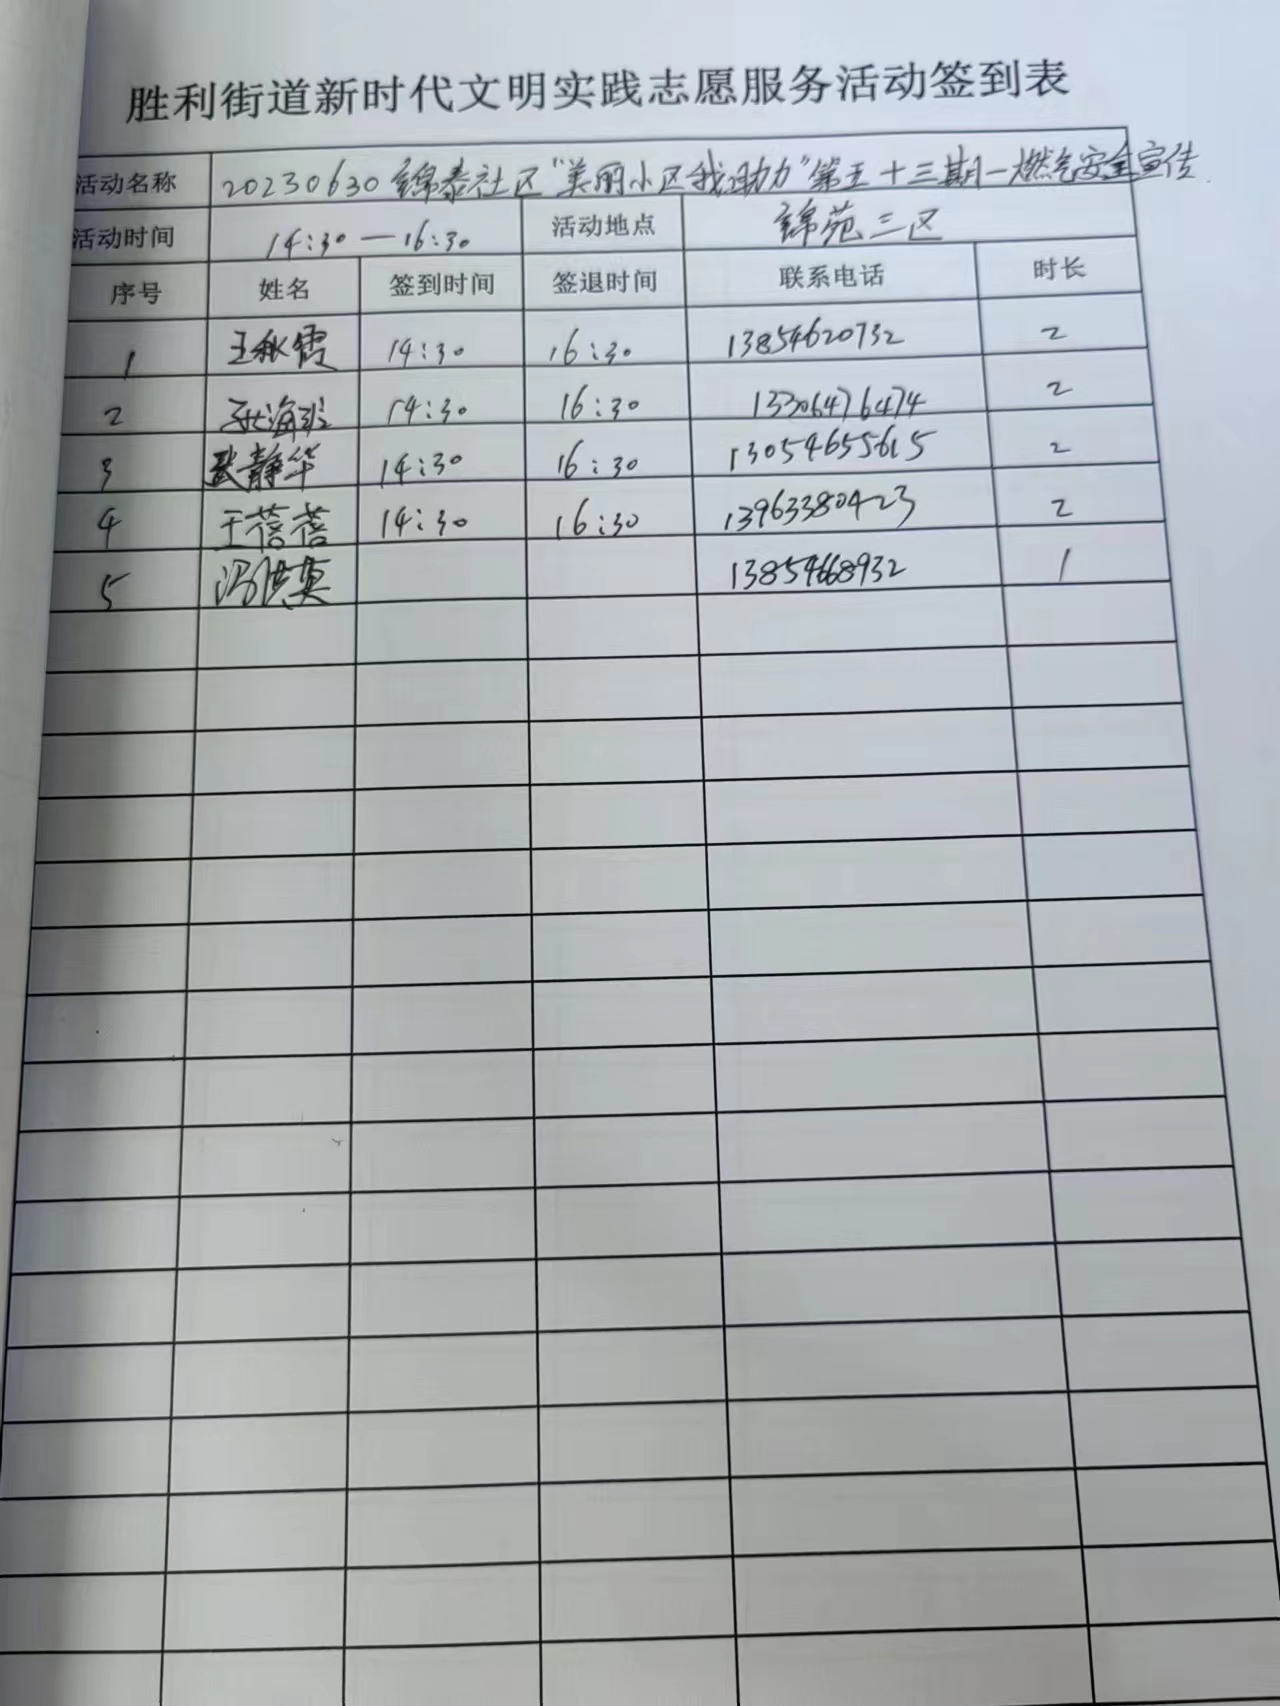 胜利街道新时代文明实践志愿服务活动签到表
活动名称 20230630锦泰社区“美丽小区我助力”第五十三期—燃气安全宣传
活动时间 14:30—16:30 活动地点 锦苑三区
序号 姓名 签到时间 签退时间 联系电话 时长
1 王秋霞 14:30 16:30 13854620732 2
2 14:30 16:30 13306476474 2
3 武静华 14:30 16:30 13054655615 2
4 王蓓蓓 14:30 16:30 13963380423 2
5 13854668932 1